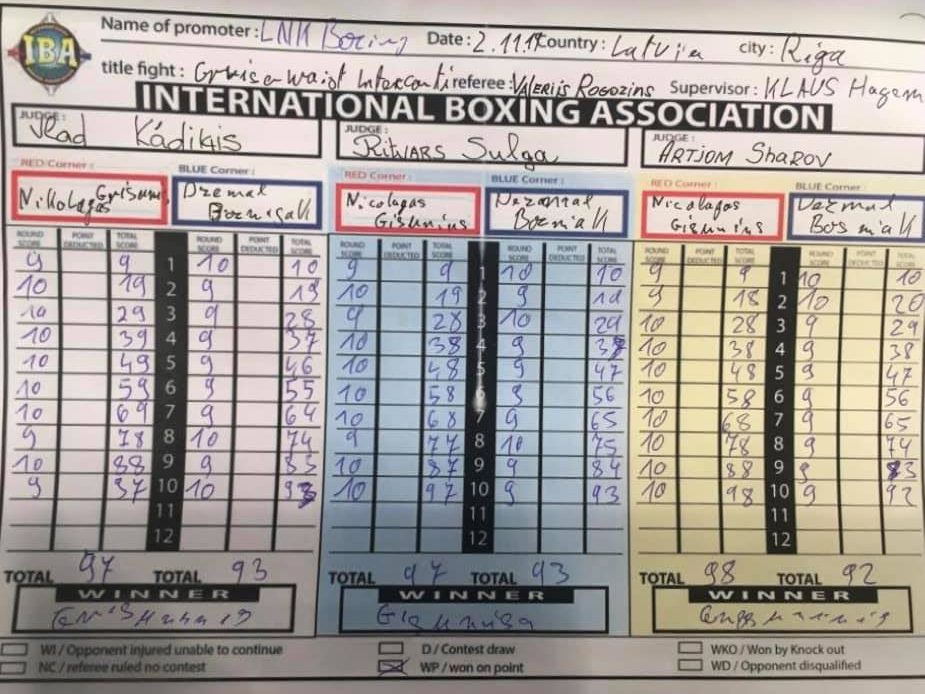 IBA
Name of promoter : LNK Boxing Date : 2.11.19 Country : Latvija city : Riga
title fight : referee : Valerijs Rogozins Supervisor : KLAUS Hagem
INTERNATIONAL BOXING ASSOCIATION
JUDGE : Vlad Kádiķis JUDGE : Ritvars Sulga JUDGE : ARTJOM SHAROV
RED Corner : BLUE Corner : RED Corner : BLUE Corner : RED Corner : BLUE Corner :
Nikolajas Grisunins Dzemal Nicolagas Gishnins Bosniak Nicolagas Gishnins Dzemal Bosniak
ROUND SCORE POINT DEDUCTED TOTAL SCORE ROUND SCORE POINT DEDUCTED TOTAL SCORE ROUND SCORE POINT DEDUCTED TOTAL SCORE ROUND SCORE POINT DEDUCTED TOTAL SCORE ROUND SCORE POINT DEDUCTED TOTAL SCORE ROUND SCORE POINT DEDUCTED TOTAL SCORE
9 9 1 10 10 9 9 1 10 10 9 9 1 10 10
10 19 2 9 19 10 19 2 9 19 9 18 2 10 20
10 29 3 9 28 9 28 3 10 29 10 28 3 9 29
10 39 4 9 37 10 38 4 9 38 10 38 4 9 38
10 49 5 9 46 10 48 5 9 47 10 48 5 9 47
10 59 6 9 55 10 58 6 9 56 10 58 6 9 56
10 69 7 9 64 10 68 7 9 65 10 68 7 9 65
9 78 8 10 74 9 77 8 10 75 10 78 8 9 74
10 88 9 9 83 10 87 9 9 84 10 88 9 9 83
9 97 10 10 93 10 97 10 9 93 10 98 10 9 92
11 11 11
12 12 12
TOTAL 97 TOTAL 93 TOTAL 97 TOTAL 93 TOTAL 98 TOTAL 92
WINNER WINNER WINNER
WI / Opponent injured unable to continue D / Contest draw WKO / Won by Knock out
NC / referee ruled no contest WP / won on point WD / Opponent disqualified